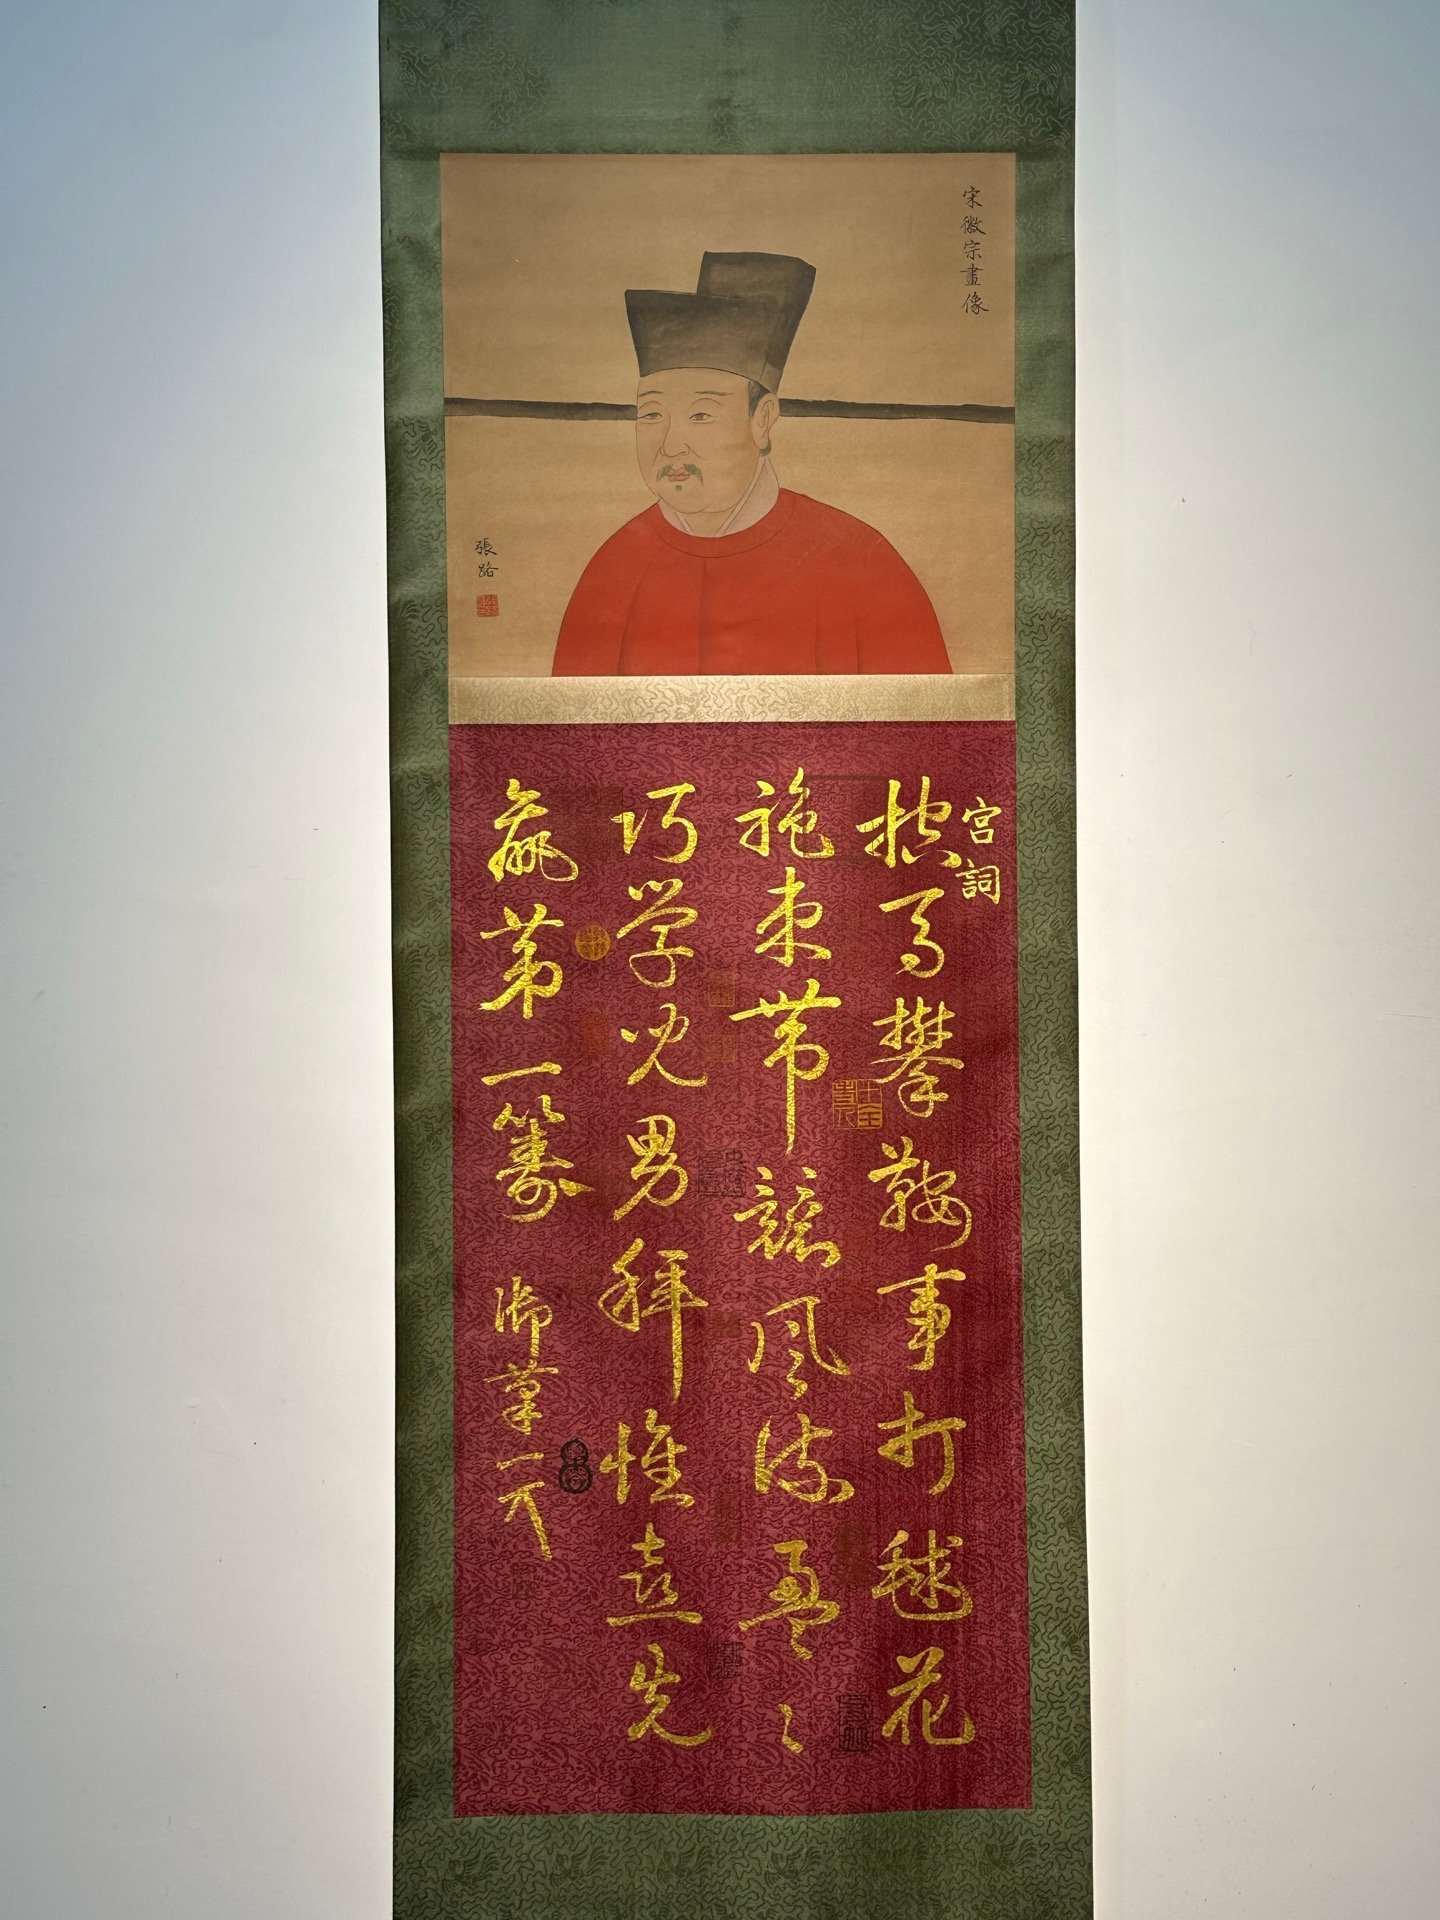 宋徽宗畫像
張路
宮詞
控馬攀鞍事打毬花
袍束帶競風流盈〻
巧学児男拜惟喜先
贏第一籌
御筆